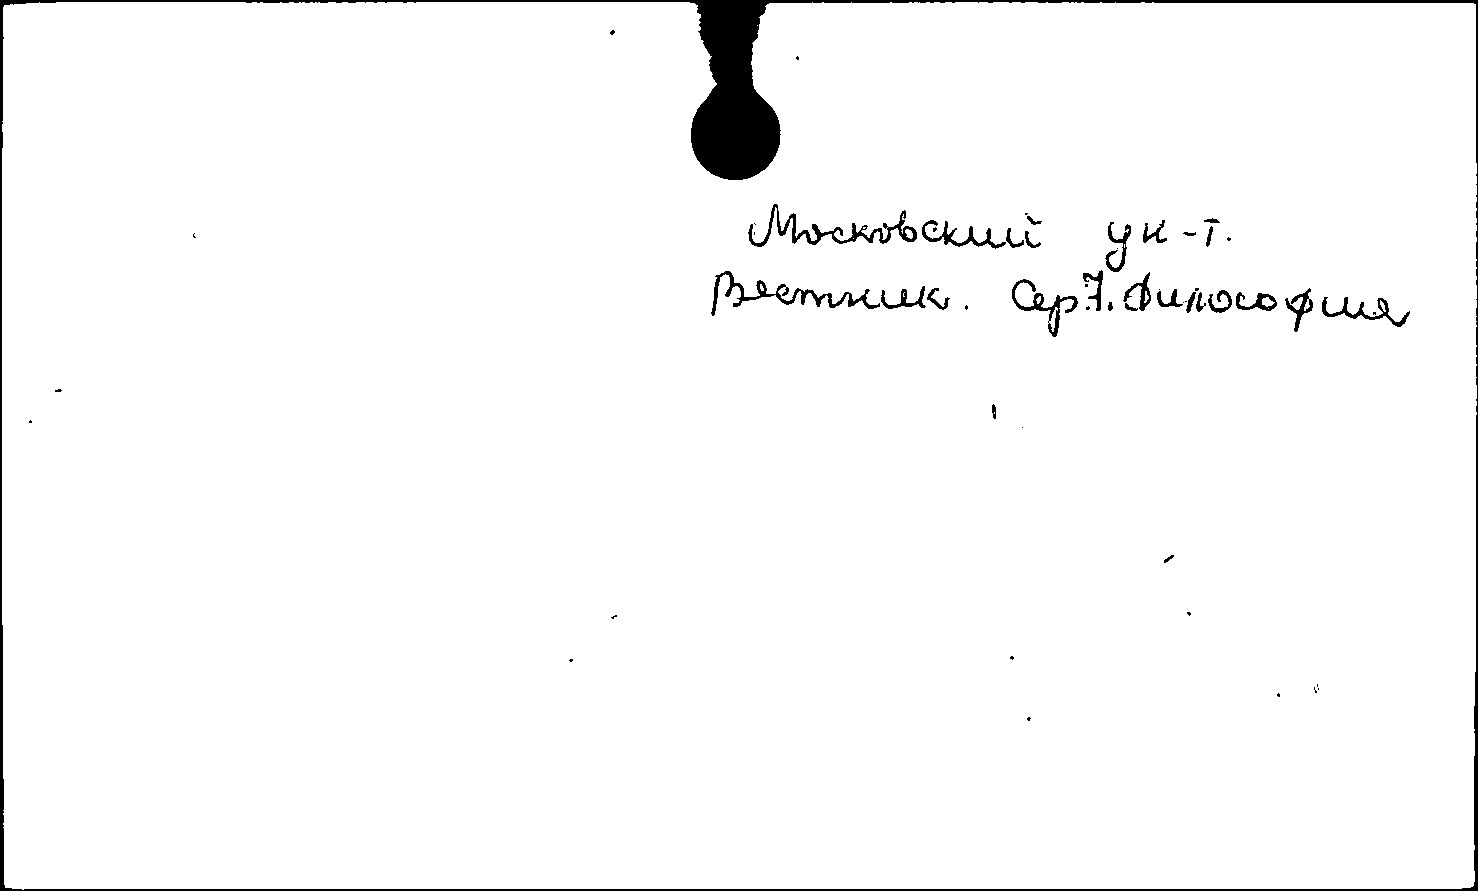 Московский ун-т.
Вестник. Сер.7. Философия